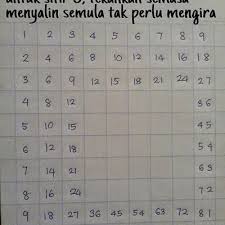 untuk sifir 3, tekankan semasa
menyalin semula tak perlu mengira
1 2 3 4 5 6 7 8 9
2 4 6 8 10 12 14 16 18
3 6 9 12 15 18 21 24 27
4 8 12 36
5 10 15 45
6 12 18 54
7 14 21 63
8 16 24 72
9 18 27 36 45 54 63 72 81